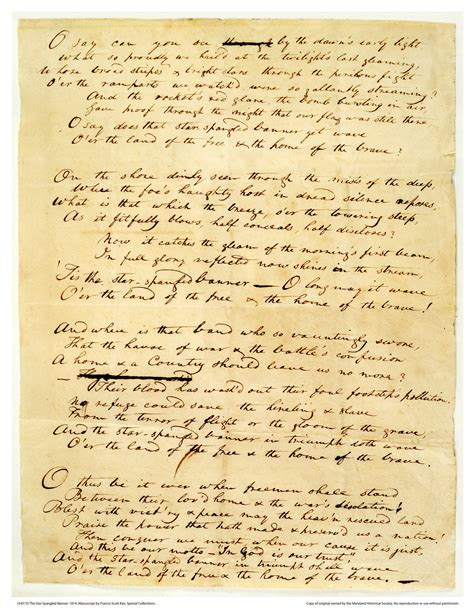 O say can you see by the dawn's early light
What so proudly we hail'd at the twilight's last gleaming,
Whose broad stripes & bright stars through the perilous fight
O'er the ramparts we watch'd, were so gallantly streaming?
And the rocket's red glare, the bomb bursting in air,
Gave proof through the night that our flag was still there
O say does that star-spangled banner yet wave
O'er the land of the free & the home of the brave?
On the shore dimly seen through the mists of the deep,
Where the foe's haughty host in dread silence reposes,
What is that which the breeze, o'er the towering steep,
As it fitfully blows, half conceals, half discloses?
Now it catches the gleam of the morning's first beam,
In full glory reflected now shines in the stream,
'Tis the star-spangled banner — O long may it wave
O'er the land of the free & the home of the brave!
And where is that band who so vauntingly swore,
That the havoc of war & the battle's confusion
A home & a Country should leave us no more?
Their blood has wash'd out their foul footsteps pollution.
No refuge could save the hireling & slave
From the terror of flight or the gloom of the grave,
And the star-spangled banner in triumph doth wave
O'er the land of the free & the home of the brave.
O thus be it ever when freemen shall stand
Between their lov'd home & the war's desolation!
Blest with vict'ry & peace may the heav'n rescued land
Praise the power that hath made & preserv'd us a nation!
Then conquer we must, when our cause it is just,
And this be our motto - "In God is our trust,"
And the star-spangled banner in triumph shall wave
O'er the land of the free & the home of the brave.
The Star Spangled Banner 1814, Manuscript by Francis Scott Key, Special Collections.
Copy of original owned by the Maryland Historical Society. No reproduction or use without permission.